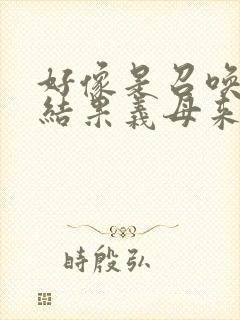 好像是召喚
結果義母來
時殷弘